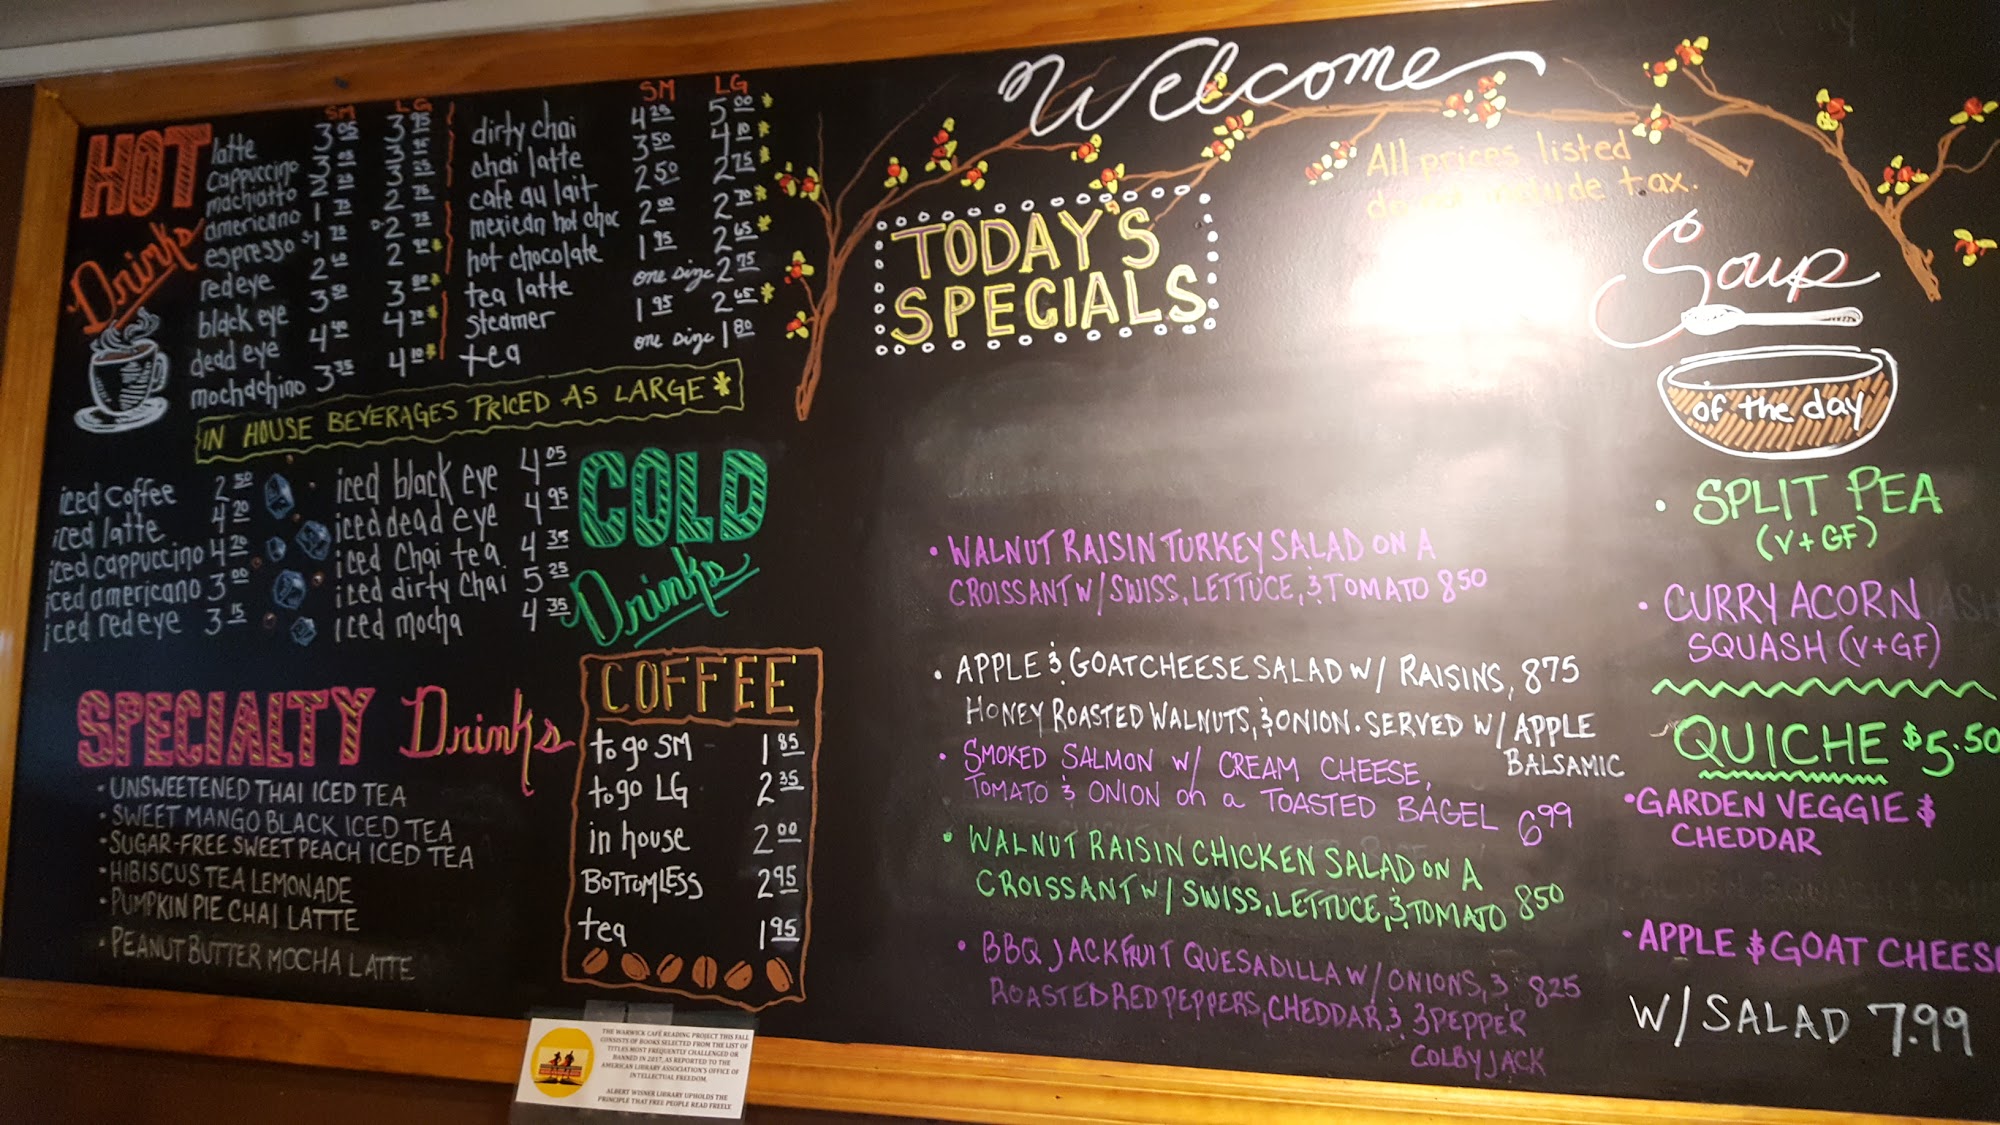 Welcome
All prices listed
do not include tax.
HOT
Drinks
SM LG
latte 3.05 3.95
cappuccino 3.05 3.95
machiatto 2.25 3.25
americano 1.75 2.75
espresso 1.75 2.75
redeye 2.60 2.90*
black eye 3.50 3.80*
dead eye 4.40 4.70*
mochachino 3.35 4.10*
SM LG
dirty chai 4.25 5.00*
chai latte 3.50 4.10*
cafe au lait 2.50 2.75*
mexican hot choc 2.00 2.70*
hot chocolate 1.95 2.65*
tea latte one size 2.75
steamer 1.95 2.65*
tea one size 1.80
IN HOUSE BEVERAGES PRICED AS LARGE*
COLD
Drinks
iced coffee 2.50
iced latte 4.20
iced cappuccino 4.20
iced americano 3.00
iced redeye 3.15
iced black eye 4.05
iced dead eye 4.95
iced Chai tea 4.35
iced dirty chai 5.25
iced mocha 4.35
SPECIALTY Drinks
• UNSWEETENED THAI ICED TEA
• SWEET MANGO BLACK ICED TEA
• SUGAR-FREE SWEET PEACH ICED TEA
• HIBISCUS TEA LEMONADE
• PUMPKIN PIE CHAI LATTE
• PEANUT BUTTER MOCHA LATTE
COFFEE
to go SM 1.85
to go LG 2.35
in house 2.00
BOTTOMLESS 2.95
tea 1.95
TODAY'S
SPECIALS
• WALNUT RAISIN TURKEY SALAD ON A
CROISSANT W/ SWISS, LETTUCE, & TOMATO 850
• APPLE & GOAT CHEESE SALAD W/ RAISINS, 875
HONEY ROASTED WALNUTS, & ONION. SERVED W/ APPLE
BALSAMIC
• SMOKED SALMON W/ CREAM CHEESE,
TOMATO & ONION on a TOASTED BAGEL 6.99
• WALNUT RAISIN CHICKEN SALAD ON A
CROISSANT W/ SWISS, LETTUCE, & TOMATO 850
• BBQ JACKFRUIT QUESADILLA W/ ONIONS, & 825
ROASTED RED PEPPERS, CHEDDAR & 3 PEPPER
COLBY JACK
Soup
of the day
• SPLIT PEA
(V+GF)
• CURRY ACORN
SQUASH (V+GF)
QUICHE $5.50
• GARDEN VEGGIE &
CHEDDAR
• APPLE & GOAT CHEESE
W/ SALAD 7.99
THE WARWICK CAFÉ READING PROJECT THIS FALL
CONSISTS OF BOOKS SELECTED FROM THE LIST OF
TITLES MOST FREQUENTLY CHALLENGED OR
BANNED IN 2017, AS REPORTED TO THE
AMERICAN LIBRARY ASSOCIATION'S OFFICE OF
INTELLECTUAL FREEDOM.
ALBERT WISNER LIBRARY UPHOLDS THE
PRINCIPLE THAT FREE PEOPLE READ FREELY